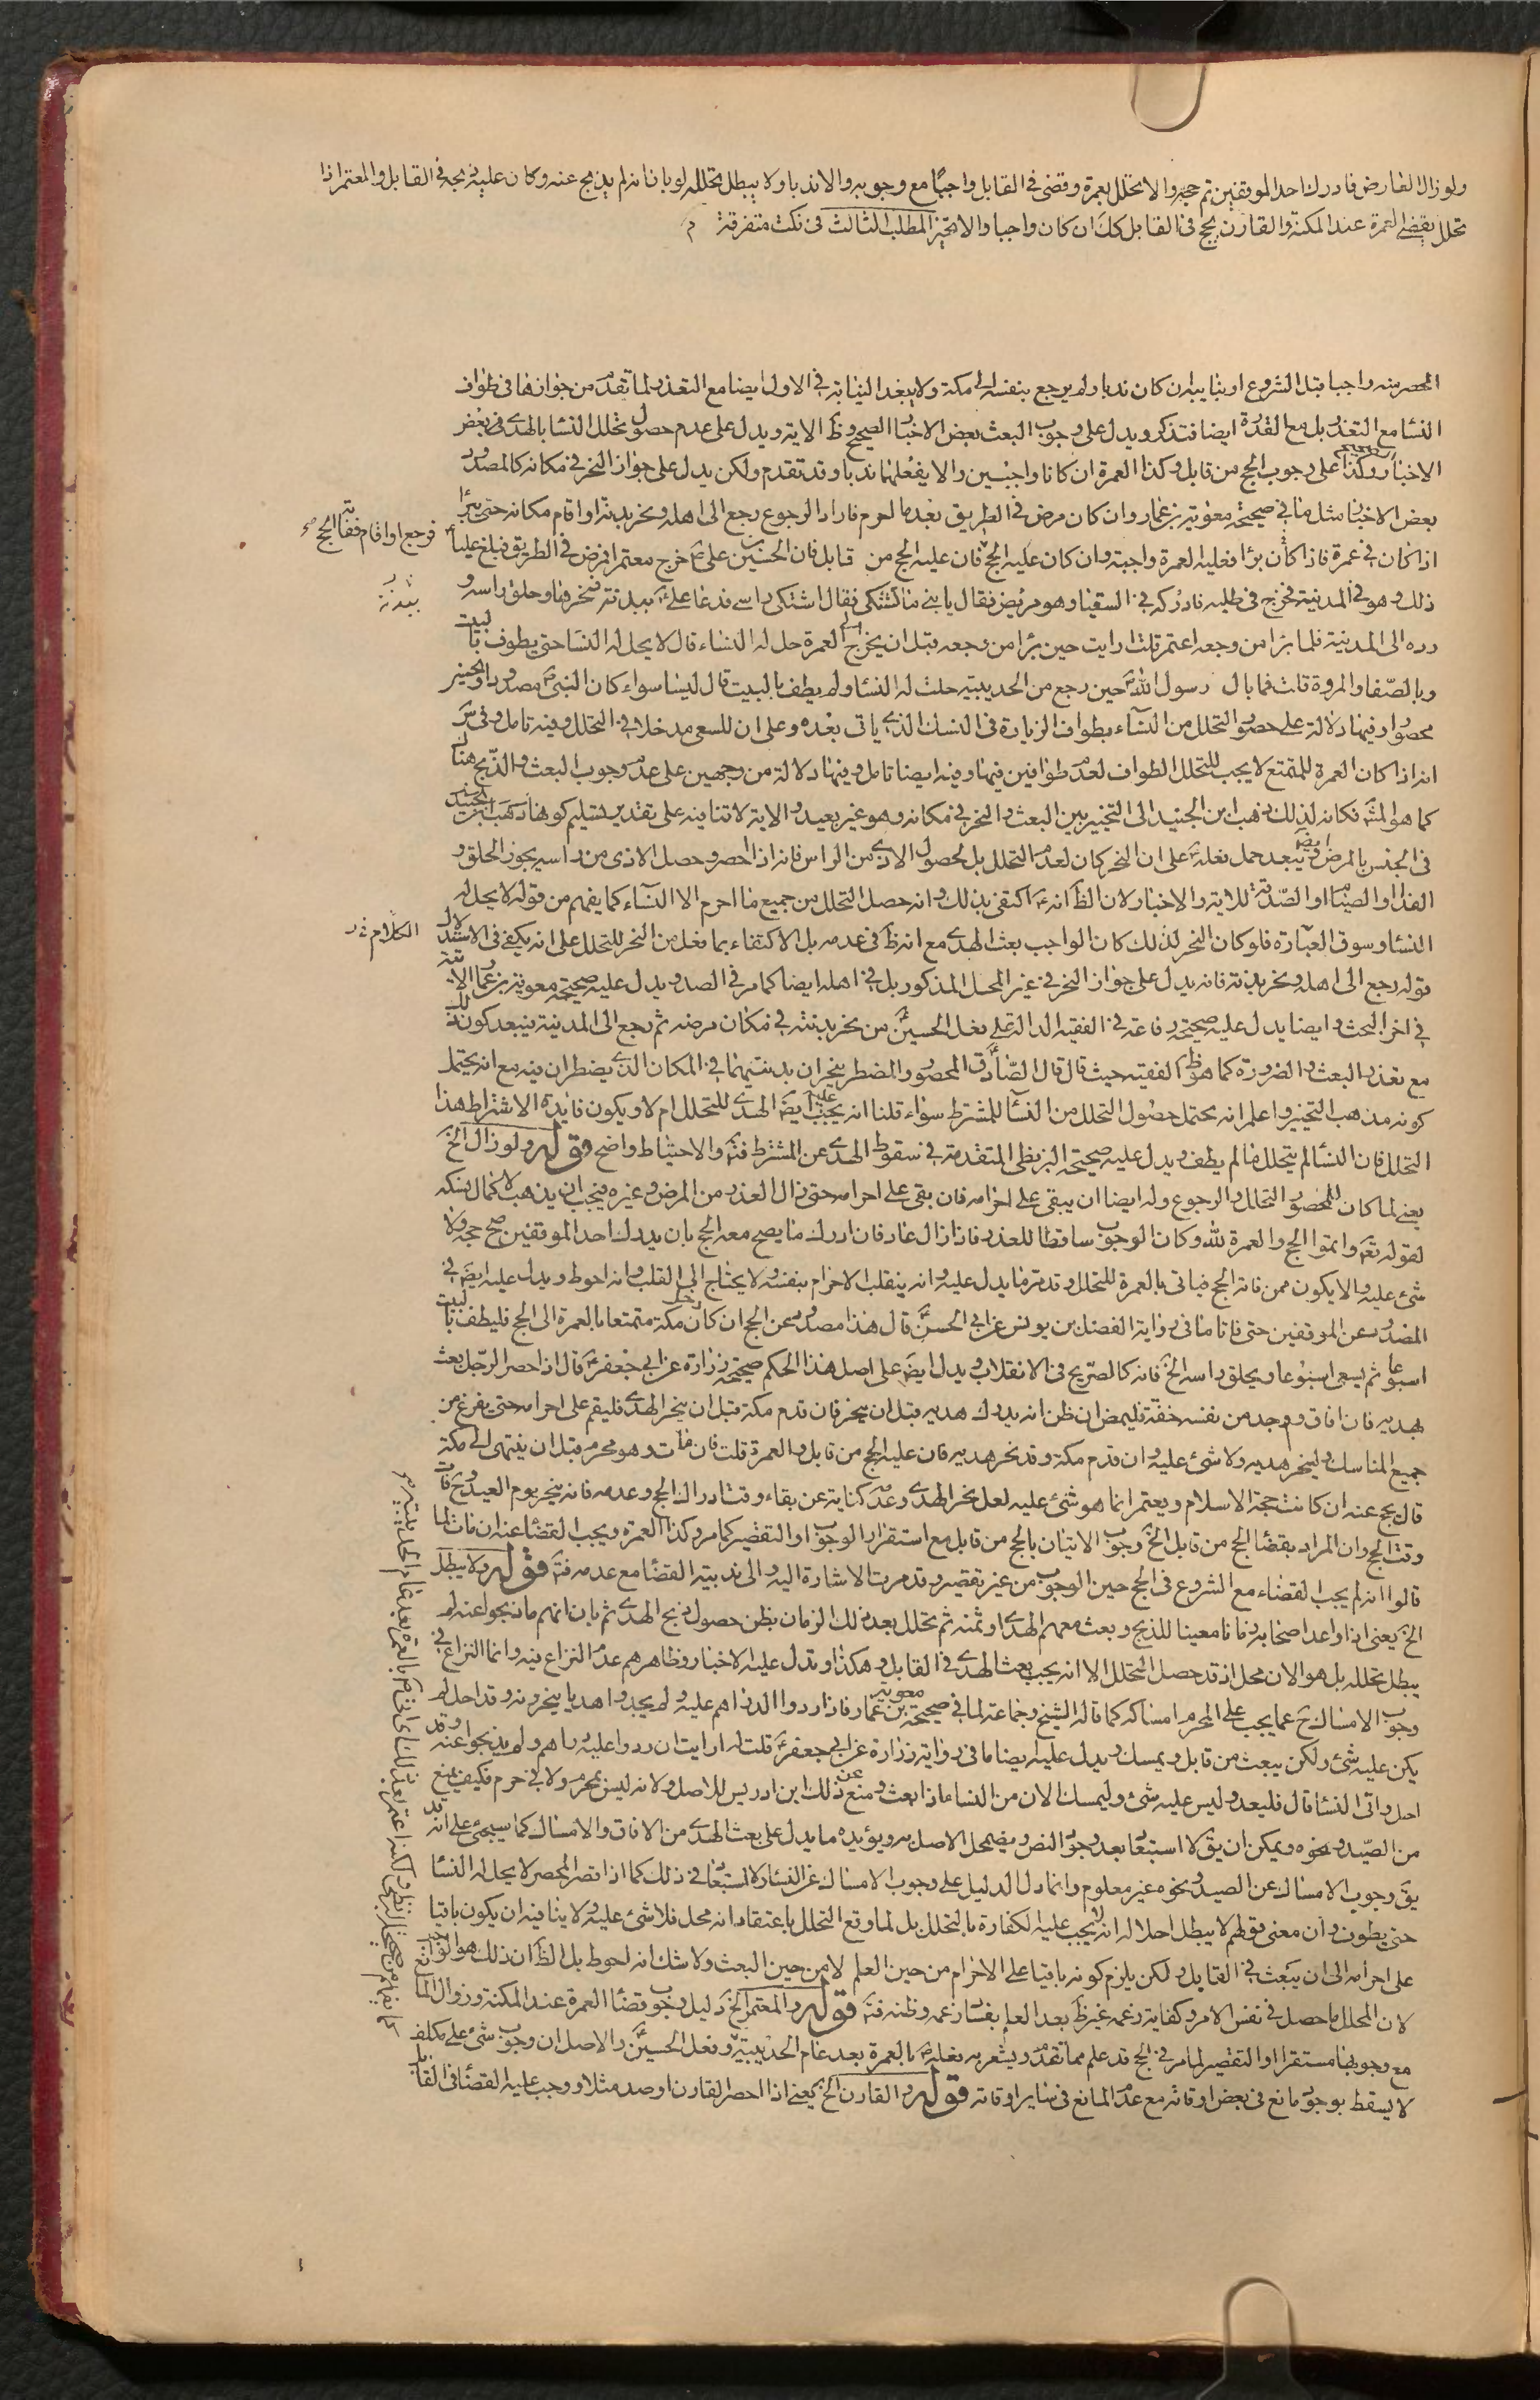 ولو زال العارض فادرك احد الموقفين تم حجه والا تحلل بعمرة وقضى فى القابل واجبا مع وجوبه والا ندبا ولا يبطل تحلله لو بان انه لم يذبح عنه وكان عليه ذبحه فى القابل والمعتمر اذا
تحلل يقضى العمرة عند المكنة والقارن يحج فى القابل كك ان كان واجبا والا تخير المطلب الثالث فى نكت متفرقة م
المحصر منه واجبا قبل الشروع او بنايبه ان كان ندبا ولم يرجع بنفسه الى مكة ولا يبعد النيابة فى الاول ايضا مع التعذر لما تقدم من جوازها فى طواف
النسا مع التعذر بل مع القدرة ايضا فتذكر ويدل على وجوب البعث بعض الاخبار الصحيح وظ الاية ويدل على عدم حصول تحلل النسا بالهدى فى بعض
الاخبار وكذا على وجوب الحج من قابل وكذا العمرة ان كانا واجبين والا يفعلهما ندبا وقد تقدم ولكن يدل على جواز النحر فى مكانه كالمصدود
بعض الاخبار مثل ما فى صحيحة معوية بن عمار وان كان مرض فى الطريق بعد ما احرم فاراد الرجوع رجع الى اهله ونحر بدنة او اقام مكانه حتى يبرا
اذا كان فى عمرة فاذا كان برا فعليه العمرة واجبة وان كان عليه الحج فان عليه الحج من قابل فان الحسين بن على ع خرج معتمرا فمرض فى الطريق فبلغ عليا ع
فرجع او اقام ففاته الحج
ذلك وهو فى المدينة فخرج فى طلبه فادركه فى السقيا وهو مريض فقال يا بنى ما تشتكى فقال اشتكى راسى فدعا على ع ببدنة فنحرها وحلق راسه و
رده الى المدينة فلما برا من وجعه اعتمر قلت ارايت حين برا من وجعه قبل ان يخرج الى العمرة حل له النساء قال لا يحل له النسا حتى يطوف بالبيت
وبالصفا والمروة قلت فما بال رسول الله ص حين رجع من الحديبية حلت له النسا ولم يطف بالبيت قال ليسا سواء كان النبى ص مصدودا والحسين
محصورا وفيها دلالة على حصول التحلل من النساء بطواف الزيارة فى النسك الذى ياتى بعده وعلى ان للسعى مدخلا فى التحلل وفيه تامل
انه اذا كان العمرة للمتمتع لا يجب للتحلل الطواف لعدم طوافين فيها وفيه ايضا تامل وفيها دلالة من وجهين على عدم وجوب البعث والذبح هناك
كما هو المش فكانه لذلك ذهب ابن الجنيد الى التخيير بين البعث والنحر فى مكانه وهو غير بعيد والاية لا تنافيه على تقدير تسليم كونها
يبعد حمل فعله ع على ان النحر كان لعدم التحلل بل لحصول الاذى من الراس فانه اذا احصر وحصل الاذى من راسه يجوز الحلق و
الفداء او الصيام او الصدقة للاية والاخبار لان الظ انه ع اكتفى بذلك وانه حصل التحلل من جميع ما احرم الا النساء كما يفهم من قوله لا يحل له
النسا وسوق العبارة فلو كان النحر لذلك كان الواجب بعث الهدى مع انه ظ فى عدمه بل الاكتفاء بما فعل من النحر للتحلل على انه يكفى فى الاستدلال
الكلام
قوله رجع الى اهله ونحر بدنة فانه يدل على جواز النحر فى غير المحل المذكور بل فى اهله ايضا كما مر فى الصد ويدل عليه صحيحة معوية بن عمار الاتية
فى اخر البحث وايضا يدل عليه صحيحة رفاعة فى الفقيه الدالة على فعل الحسين ع من نحر بدنته فى مكان مرضه ثم رجع الى المدينة فيبعد كون ذلك
مع تعذر البعث والضرورة كما هو ظ الفقيه حيث قال قال الصادق ع المحصور والمضطر ينحران بدنتيهما فى المكان الذى يضطران فيه مع انه يحتمل
كونه مذهب التخيير واعلم انه يحتمل حصول التحلل من النسا للمشترط سواء قلنا انه يجب عليه ايض الهدى للتحلل ام لا ويكون فايدة الاشتراط هذا
التحلل فان النسا لم يتحلل ما لم يطف ويدل عليه صحيحة البزنطى المتقدمة فى سقوط الهدى عن المشترط فتم والاحتياط واضح قوله ولو زال الخ
يعنى لما كان للمحصور التحلل والرجوع وله ايضا ان يبقى على احرامه فان بقى على احرامه حتى زال العذر من المرض وغيره فيجب ان يذهب لاكمال نسكه
لقوله تع واتموا الحج والعمرة لله وكان الوجوب ساقطا للعذر فاذا زال عاد فان ادرك ما يصح معه الحج بان يدرك احد الموقفين صح حجه ولا
شئ عليه والا يكون ممن فاته الحج فياتى بالعمرة للتحلل وقد مر ما يدل عليه وانه ينقلب الاحرام بنفسه ولا يحتاج الى القلب وانه احوط ويدل عليه ايض فى
المصدود عن الموقفين حتى فاتا ما فى رواية الفضل بن يونس عن ابى الحسن ع قال هذا مصدود عن الحج ان كان دخل مكة متمتعا بالعمرة الى الحج فليطف بالبيت
اسبوعا ثم يسعى اسبوعا ويحلق راسه الخ فانه كالصريح فى الانقلاب ويدل ايض على اصل هذا الحكم صحيحة زرارة عن ابى جعفر ع قال اذا احصر الرجل بعث
بهديه فان افاق ووجد من نفسه خفة فليمض ان ظن انه يدرك هديه قبل ان ينحر فان قدم مكة قبل ان ينحر الهدى فليقم على احرامه حتى يفرغ من
جميع المناسك ولينحر هديه ولا شئ عليه وان قدم مكة وقد نحر هديه فان عليه الحج من قابل والعمرة قلت فان مات وهو محرم قبل ان ينتهى الى مكة
قال يحج عنه ان كانت حجة الاسلام ويعتمر انما هو شئ عليه لعل نحر الهدى وعدمه كناية عن بقاء وقت ادراك الحج وعدمه فانه ينحر يوم العيد وح فات
وقت الحج وان المراد بقضا الحج من قابل الخ وجوب الاتيان بالحج من قابل مع استقرار الوجوب او التقصير كما مر وكذا العمرة ويجب القضا عنه ان مات لما
قالوا انه لم يجب القضاء مع الشروع فى الحج حين الوجوب من غير تقصير وقد مرت الاشارة اليه والى ندبية القضا مع عدمه فتم قوله ولا يبطل
الخ يعنى اذا واعد اصحابه زمانا معينا للذبح وبعث معهم الهدى او ثمنه ثم تحلل بعد ذلك الزمان بظن حصول ذبح الهدى ثم بان انهم ما ذبحوا عنه لم
يبطل تحلله بل هو الان محل اذ قد حصل التحلل الا انه يجب بعث الهدى فى القابل وهكذا وتدل عليه الاخبار وظاهرهم عدم النزاع فيه وانما النزاع فى
وجوب الامساك ح عما يجب على المحرم امساكه كما قاله الشيخ وجماعة لما فى صحيحة معوية بن عمار فاذا ردوا الدراهم عليه ولم يجدوا هديا ينحرونه وقد احل لم
يكن عليه شئ ولكن يبعث من قابل ويمسك ويدل عليه ايضا ما فى رواية زرارة عن ابى جعفر ع قلت له ارايت ان ردوا عليه دراهمه ولم يذبحوا عنه وقد
احل واتى النسا قال فليعد وليس عليه شئ وليمسك الان من النسا اذا بعث ومنع عن ذلك ابن ادريس للاصل ولانه ليس بمحرم ولا فى حرم فكيف يمنع
من الصيد ونحوه ويمكن ان يق لا استبعاد بعد وجود النص ويضمحل الاصل به ويؤيده ما يدل على بعث الهدى من الافاق والامساك كما سيجئ على انه قد
يق وجوب الامساك عن الصيد ونحوه غير معلوم وانما دل الدليل على وجوب الامساك عن النسا ولا استبعاد فى ذلك كما اذا قصر المحصر لا يحل له النسا
حتى يطوف وان معنى قولهم لا يبطل احلاله انه لا يجب عليه الكفارة بالتحلل بل لما وقع التحلل باعتقاد انه محل فلا شئ عليه ولا ينافيه ان يكون باقيا
على احرامه الى ان يبعث فى القابل ولكن يلزم كونه باقيا على الاحرام من حين العلم لا من حين البعث ولا شك انه احوط بل الظ ان ذلك هو الواجب
لان المحلل ما حصل فى نفس الامر وكفاية زعمه غير ظ بعد العلم بفساد زعمه وظنه فتم قوله والمعتمر الخ دليل وجوب قضا العمرة عند المكنة وزوال المانع
مع وجوبها مستقرا او التقصير لما مر فى الحج قد علم مما تقدم ويشعر به فعله ص بالعمرة بعد عام الحديبية وفعل الحسين ع والاصل ان وجوب شئ على مكلف
لا يسقط بوجود مانع فى بعض اوقاته مع عدم المانع فى ساير اوقاته قوله والقارن الخ يعنى اذا احصر القارن او صد مثلا ووجب عليه القضا فى القابل